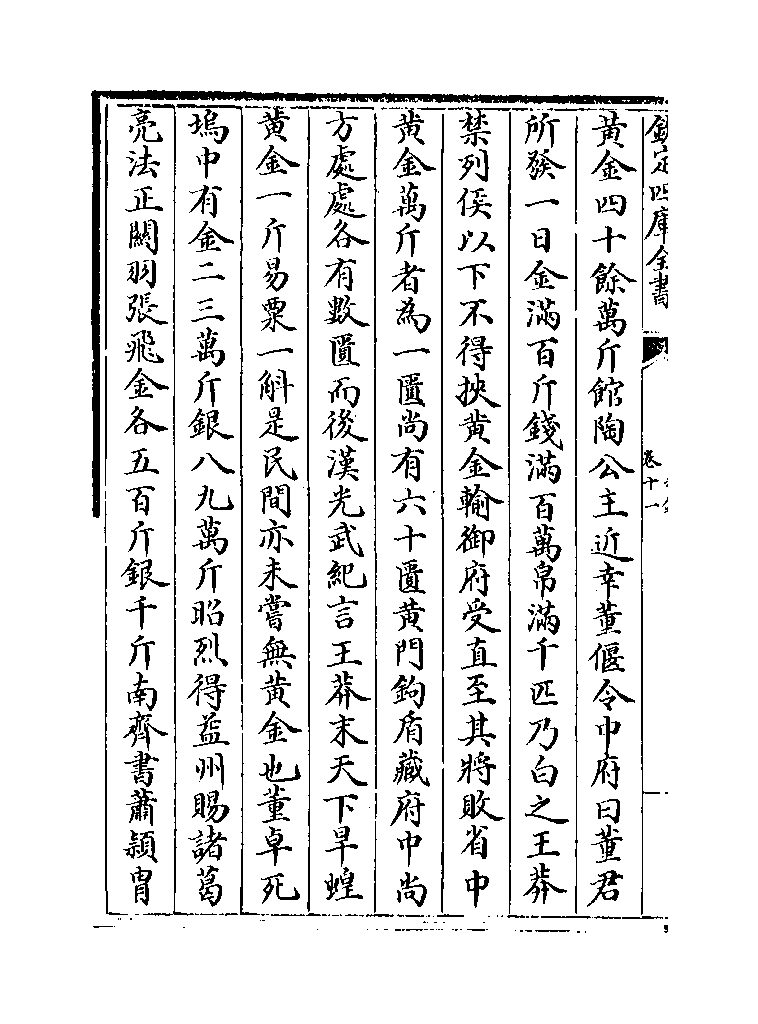 欽定四庫全書
卷十一
黄金四十餘萬斤館陶公主近幸董偃令中府曰董君
所發一日金滿百斤錢滿百萬帛滿千匹乃白之王莽
禁列侯以下不得挾黄金輸御府受直至其將敗省中
黄金萬斤者為一匱尚有六十匱黄門鉤盾藏府中尚
方處處各有數匱而後漢光武紀言王莽末天下旱蝗
黄金一斤易粟一斛是民間亦未嘗無黄金也董卓死
塢中有金二三萬斤銀八九萬斤昭烈得益州賜諸葛
亮法正關羽張飛金各五百斤銀千斤南齊書蕭穎胄